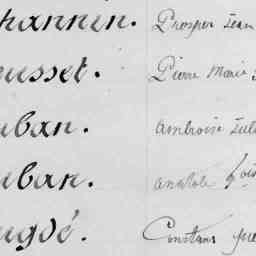 hannin. Prosper Jean
usset. Pierre Marie
uban. Ambroise Jule
uban. Anatole fçois
ugdé. Constans